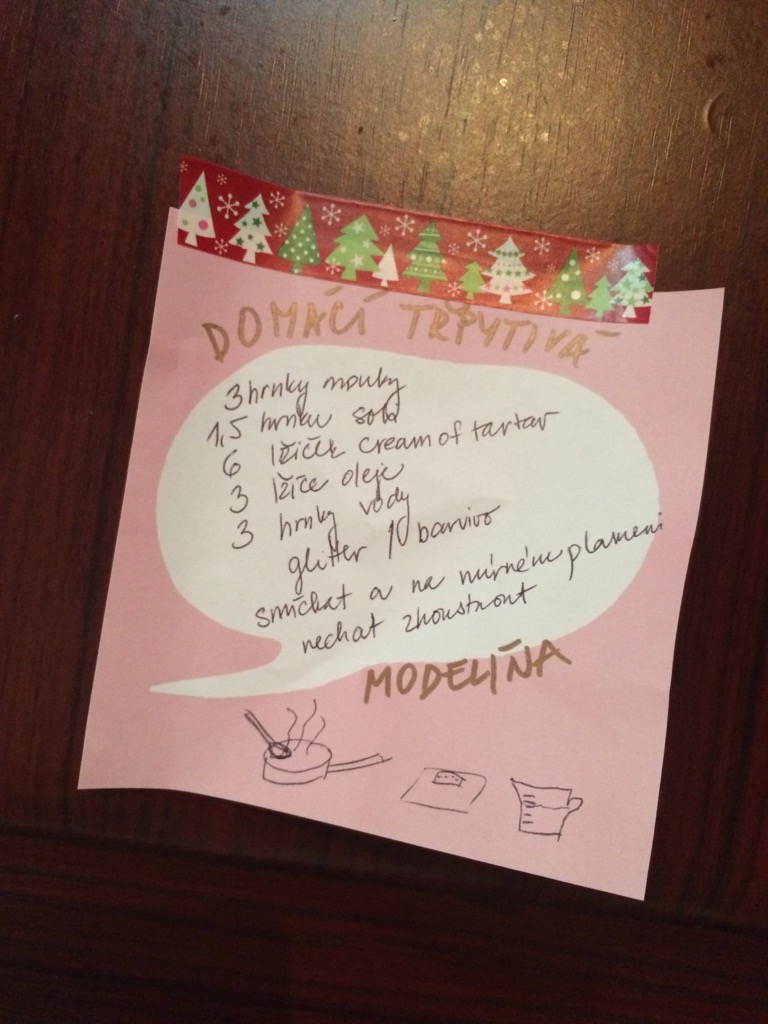 DOMÁCÍ TŘPYTIVÁ
3 hrnky mouky
1,5 hrnku soli
6 lžiček cream of tartar
3 lžíce oleje
3 hrnky vody
glitter / barvivo
smíchat a na mírném plameni
nechat zhoustnout
MODELÍŇA